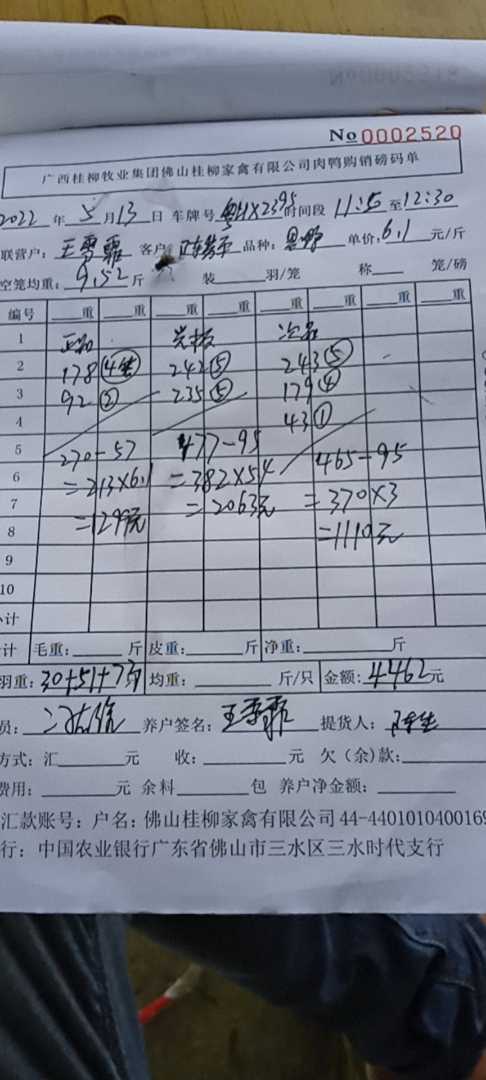 No 0002520
广西桂柳牧业集团佛山桂柳家禽有限公司肉鸭购销磅码单
2022 年 5 月 13 日 车牌号 粤HX2395 时间段 11:5 至 12:30
联营户: 客户: 品种: 单价: 6.1 元/斤
空笼均重: 9.52 斤 装 羽/笼 称 笼/磅
编号 重 重 重 重 重 重 重 重
1 正品 次品
2 178 ④ 242 ⑤ 243 ⑤
3 92 ② 235 ⑤ 179 ④
4 43 ①
5 270-57 477-95 465-95
6 =213×6.1 =382×5.4
7 =1299元 =2063元 =370×3
8 =1110元
9
10
小计
合计 毛重: 斤 皮重: 斤 净重: 斤
羽重: 30+51+ 均重: 斤/只 金额: 4462元
员: 养户签名: 提货人:
方式: 汇 元 收: 元 欠(余)款:
费用: 元 余料 包 养户净金额:
汇款账号: 户名: 佛山桂柳家禽有限公司 44-4401010400169
行: 中国农业银行广东省佛山市三水区三水时代支行